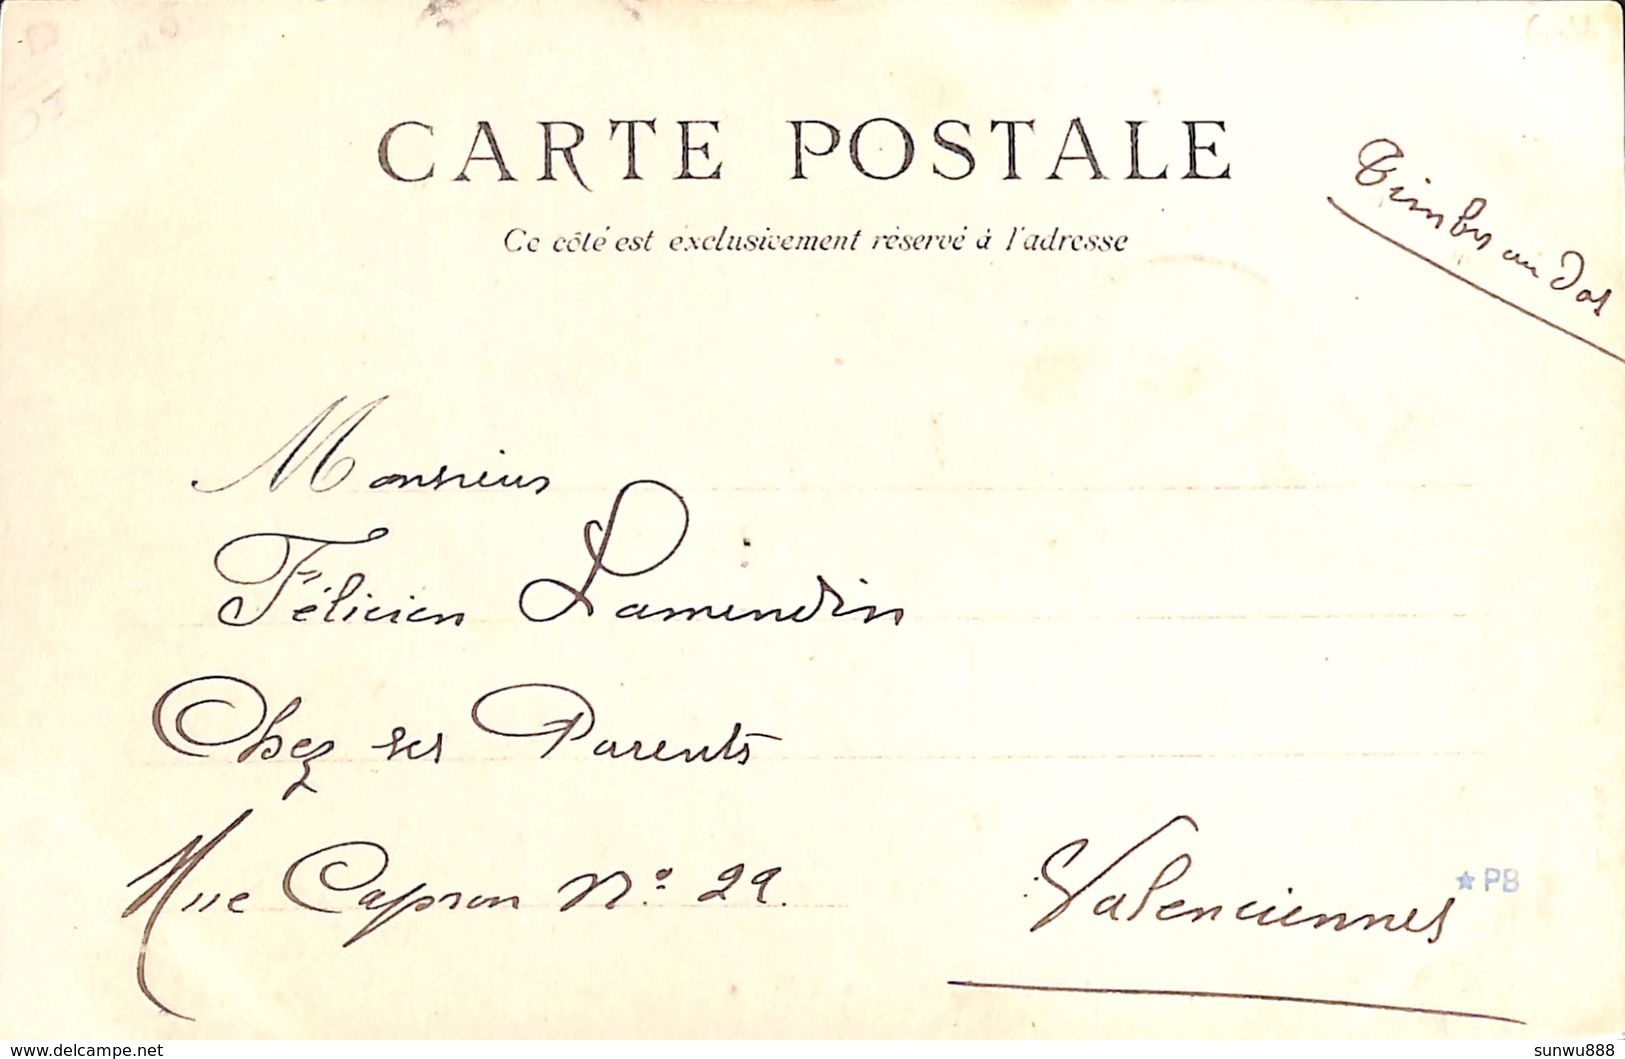 CARTE POSTALE
Ce côté est exclusivement réservé à l'adresse
Timbre au Dos
Monsieur
Félicien Lamendin
Chez ses Parents
Rue Capron N° 29.
Valenciennes
★PB
www.delcampe.net
sunwu888